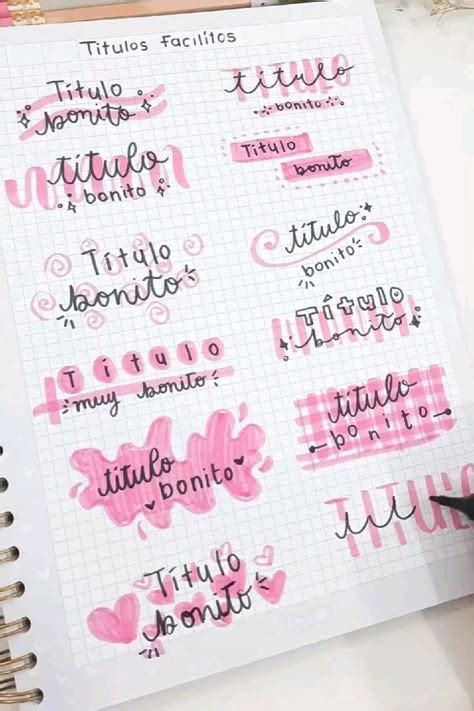 Titulos Facilitos
Título
bonito
título
bonito
título
bonito
Título
bonito
Título
bonito
título
bonito
Título
muy bonito
Título
bonito
título
bonito
título
bonito
Título
bonito
TÍTULO